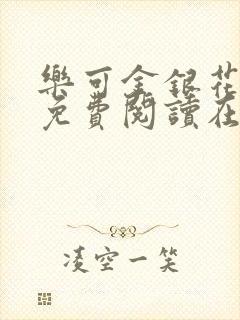 樂可金銀花
免費閱讀在
凌空一笑